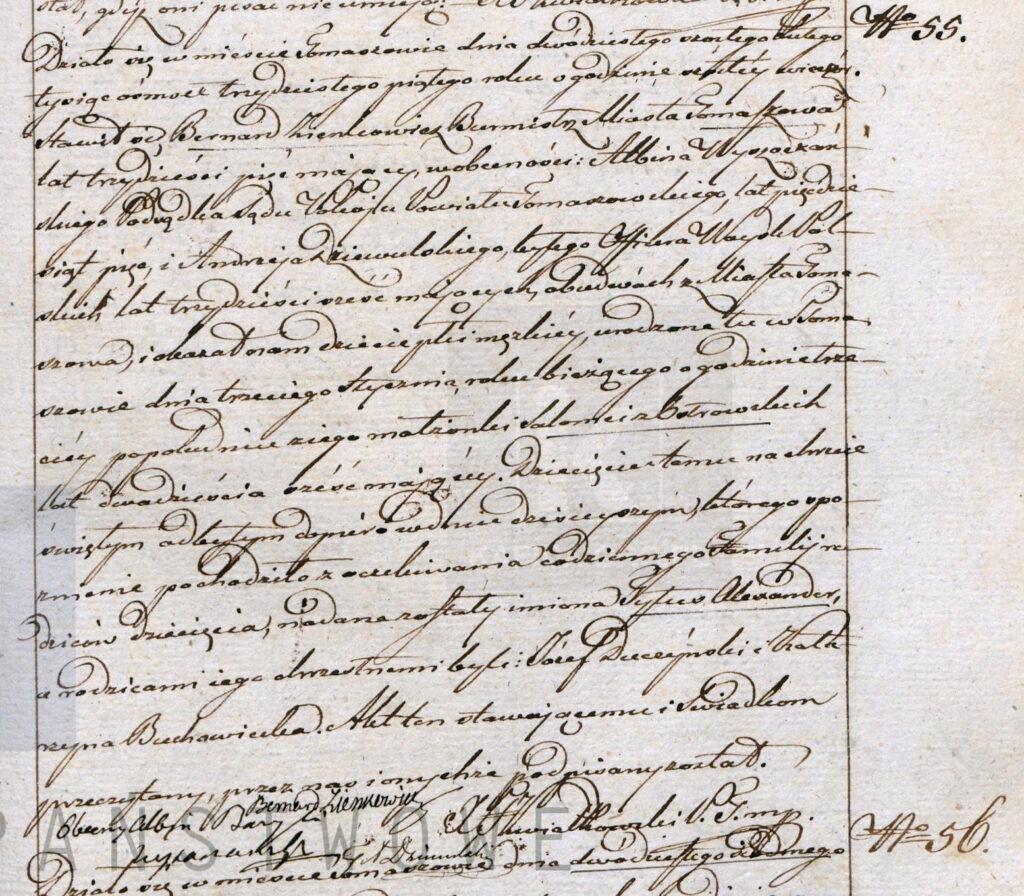 stał, gdyż oni pisać nie umieją.
No 55.
Działo się w mieście Tomaszowie dnia dwódziestego szóstego Lutego
tysiąc ośmset trzydziestego piątego roku o godzinie szóstey wieczor.
stawił się, Bernard Zienkowicz Burmistrz Miasta Tomaszowa
lat trzydzieści pięć mający, w obecności: Albina Wysoczań-
skiego Podsędka Sądu Pokoju Powiatu Tomaszowskiego, lat pięćdzie-
siąt pięć, i Andrzeja Dziewulskiego, byłego Officera Woysk Pol-
skich lat trzydzieści sześć mających, obudwóch z Miasta Toma-
szowa, i okazał nam dziecie płci męzkiéy, urodzone tu w Toma
szowie dnia trzeciego Stycznia roku bieżącego o godzinie trze-
ciéy popołudniu z iego małżonki Salomei z Ostrowskich
lat dwadzieścia sześć maiącéy. Dziecięciu temu na chrzcie
świętym odbytym dopiéro w dniu dzisieyszym, którego spo
znienie pochodziło z oczekiwania codziennego Familij ro-
dziców dziecięcia, nadane zostały imiona Tytus Alexánder,
a rodzicami iego chrzestnemi byli: Józef i Kata
rzyna Buchowiecka. Akt ten stawaiącemu i Świadkom
przeczytany, przez nas i onychże podpisany został.
Obecny Albin Bernard Zienkowicz X. Kwiatkowski P. T. mp.
No 56.
Działo się w mieście Tomaszowie dnia dwódziestego siódmego
PAŃSTWOWE